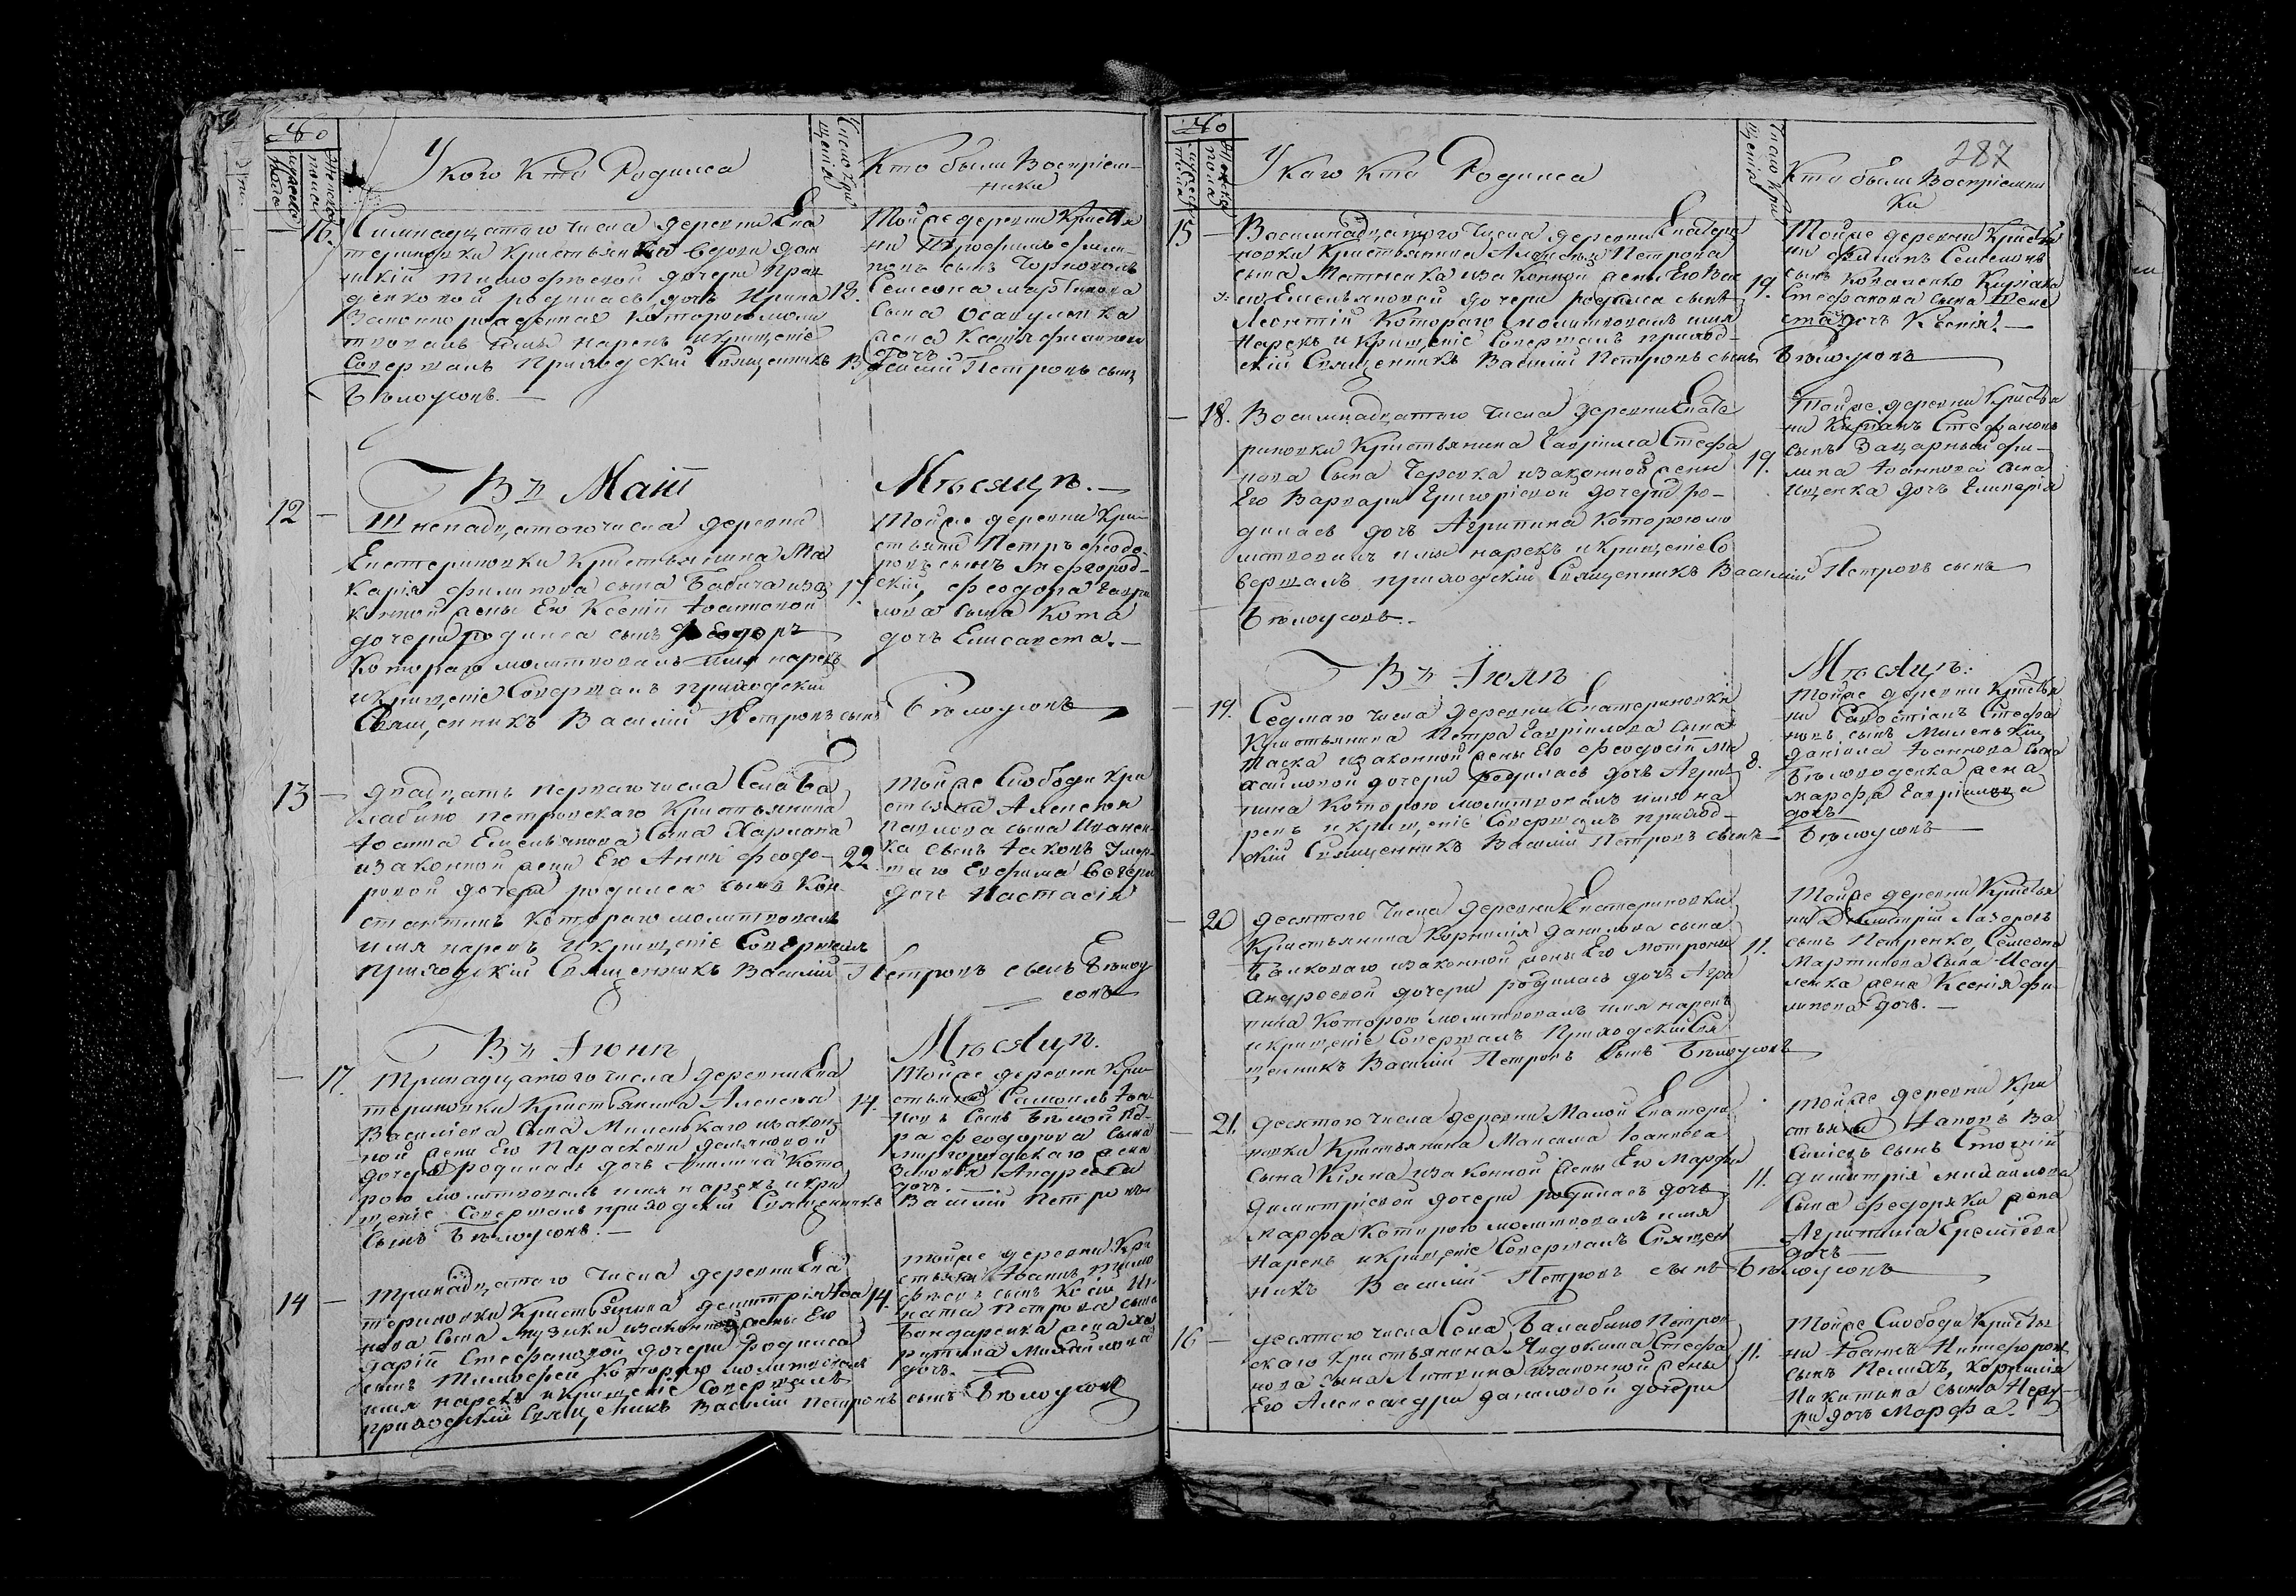 No
Мужеска пола
Женска пола
У кого кто Родился
Число Крещенія
Кто были Восприем-
ники
16.
Семнадцатого числа деревни Ека
териновки Крестьянки вдови Дом
никій Тимофѣевой дочери
денковой родилась дочь Ирина
Законнорожденная которою моли
твовалъ имя нарекъ и крещеніе
Совершалъ Приходскій Священникъ Василий Петровъ сынъ
Бѣлоусовъ.
18.
Тойже деревни Кристія
ни Трофимъ Фили
повъ сынъ
Семеона Мартинова
сына Осауленка
жена Ксенія Филипова
дочь
Въ Маіи Мѣсяцѣ.
12
Шиснадцатого числа деревни
Екатериновки Крестьянина Ма
карія Филипова сына Бабича иза
конной жены Его Ксеніи Іоанновой
дочери родился сынъ Феодоръ
Котораго молитвовалъ имя нарекъ
и крещеніе Совершалъ приходскій
Священникъ Василий Петровъ сынъ Бѣлоусовъ
17.
Тойже деревни Кри
стьяни Петръ Феодо
ровъ сынъ Миргород-
скій, Феодора Гаври
лова сына Кота
дочь Елисавета.
13
Двадцать перваго числа Села Ба
лабино Петровскаго Крестьянина
Іоанна Емельянова сына Хармана
изаконной жены Его Анни Феодо-
ровой дочери родился сынъ Кон
стантинъ Котораго молитвовалъ
имя нарекъ и крещеніе Совершалъ
Приходскій Священникъ Василий Петровъ сынъ Бѣлоу
совъ
22
Тойже Слободи Кри
стьяни Алексея
Павлова сына Иванен
ка сынъ Іаковъ Умер-
шаго Ефима
дочь Настасія
Въ Іюнѣ Мѣсяцѣ.
17.
Тринадцатого числа деревни Ека
териновки Крестьянина Алексея
Василіева сына Миленкаго изакон
ной жены Его Параскеви Демяновой
дочери родилась дочь Акилина Кото
рою молитвовалъ имя нарекъ и кре
щеніе Совершалъ приходскій Священникъ Василий Петровъ
Сынъ Бѣлоусовъ.
14.
Тойже деревни Кри
стьяни Самоилъ Іоа
новъ сынъ Бѣлой
ра Феодорова сына
Миргородскаго жена
Зиновія Андреева
дочь
14
Тринадцатого числа деревни Ека
териновки Крестьянина Димитрія Іоа
нова сына Музики изаконной жены Его
Даріи Стефановой дочери родился
сынъ Тимофей Котораго молитвовалъ
имя нарекъ и крещеніе Совершалъ
приходскій Священникъ Василий Петровъ сынъ Бѣлоусовъ
14.
Тойже деревни Кри
стьяни Іоаннъ Тимо
фѣевъ сынъ
ната Петрова сына
Бондаренка жена Ха
ритина Михайлова
дочь.
No
Мужеска пола
Женска пола
У кого кто Родился
Число Крещенія
287
Кто были Восприемни
ки
15
Восимнадцатого числа деревни Екатери
новки Крестьянина Алексея Петрова
сына Матненка иза конной жены Его
Емельяновой дочери родился сынъ
Леонтій Котораго молитвовалъ имя
Нарекъ и крещеніе Совершалъ приход-
скій Священникъ Василий Петровъ сынъ Бѣлоусовъ
19.
Тойже деревни Кристья
ни Филипъ Семеоновъ
сынъ Коваленко Киріака
Стефанова сына
дочь Ксенія.
18.
Восимнадцатого числа деревни Екате
риновки Крестьянина Гавріила Стефа
нова сына Черевка изаконной жени
Его Варвари Григоріевой дочери ро-
дилась дочь Агрипина Которою мо
литвовалъ имя нарекъ и крещеніе Со
вершалъ приходскій Священникъ Василий Петровъ сынъ
Бѣлоусовъ.
19.
Тойже деревни Кристья
ни Стефановъ
сынъ Фи-
липа Іоаннова сына
Ищенка дочь Гликерія
Въ Іюлѣ Мѣсяцѣ.
19.
Седмаго числа деревни Екатериновки
Крестьянина Петра Гавріилова сына
Таска изаконной жены Его Феодосіи Ми
хайловой дочери родилась дочь Агри
пина Которою молитвовалъ имя на
рекъ и крещеніе Совершалъ приход-
скій Священникъ Василий Петровъ сынъ Бѣлоусовъ
8.
Тойже деревни Кристья
ни Савостіанъ Стефа
новъ сынъ Миленькій
Даніила Іоаннова сына
Бѣловоденка жена
Марфа Гавріилова
дочь
20
Десятого числа деревни Екатериновки
Крестьянина Корнилія Данилова сына
Балковаго изаконной жены Его Мотрони
Андреевой дочери родилась дочь Агри
пина Которою молитвовалъ имя нарекъ
и крещеніе Совершалъ Приходскій Свя
щенникъ Василий Петровъ сынъ Бѣлоусовъ
11.
Тойже деревни Кристья
ни Димитрій Лазоровъ
сынъ Петренко, Семеона
Мартинова сына Исау-
ленка жена Ксенія Фи-
липова дочь.
21.
Десятого числа деревни Малой Екатери
новки Крестьянина Максима Іоаннова
сына Кіяна изаконной жены Его Марфи
Димитріевой дочери родилась дочь
Марфа Которою молитвовалъ имя
Нарекъ и крещеніе Совершалъ Священ
никъ Василий Петровъ сынъ Бѣлоусовъ
11.
Тойже деревни Кри
стьяни Іаковъ Ва
силіевъ сынъ Стогній
Димитрія Михайлова
сына Федоряки жена
Агрипина Еремѣева
дочь
16
Десятого числа Села Балабино Петров
скаго Крестьянина Явдокима Стефа
нова сына Литвина изаконной жены
Его Александри Даниловой дочери
11.
Тойже Слободи Кристья
ни Іоаннъ Никифоровъ
сынъ Пелихъ, Корнилія
Никитина сына
дочь Марфа.